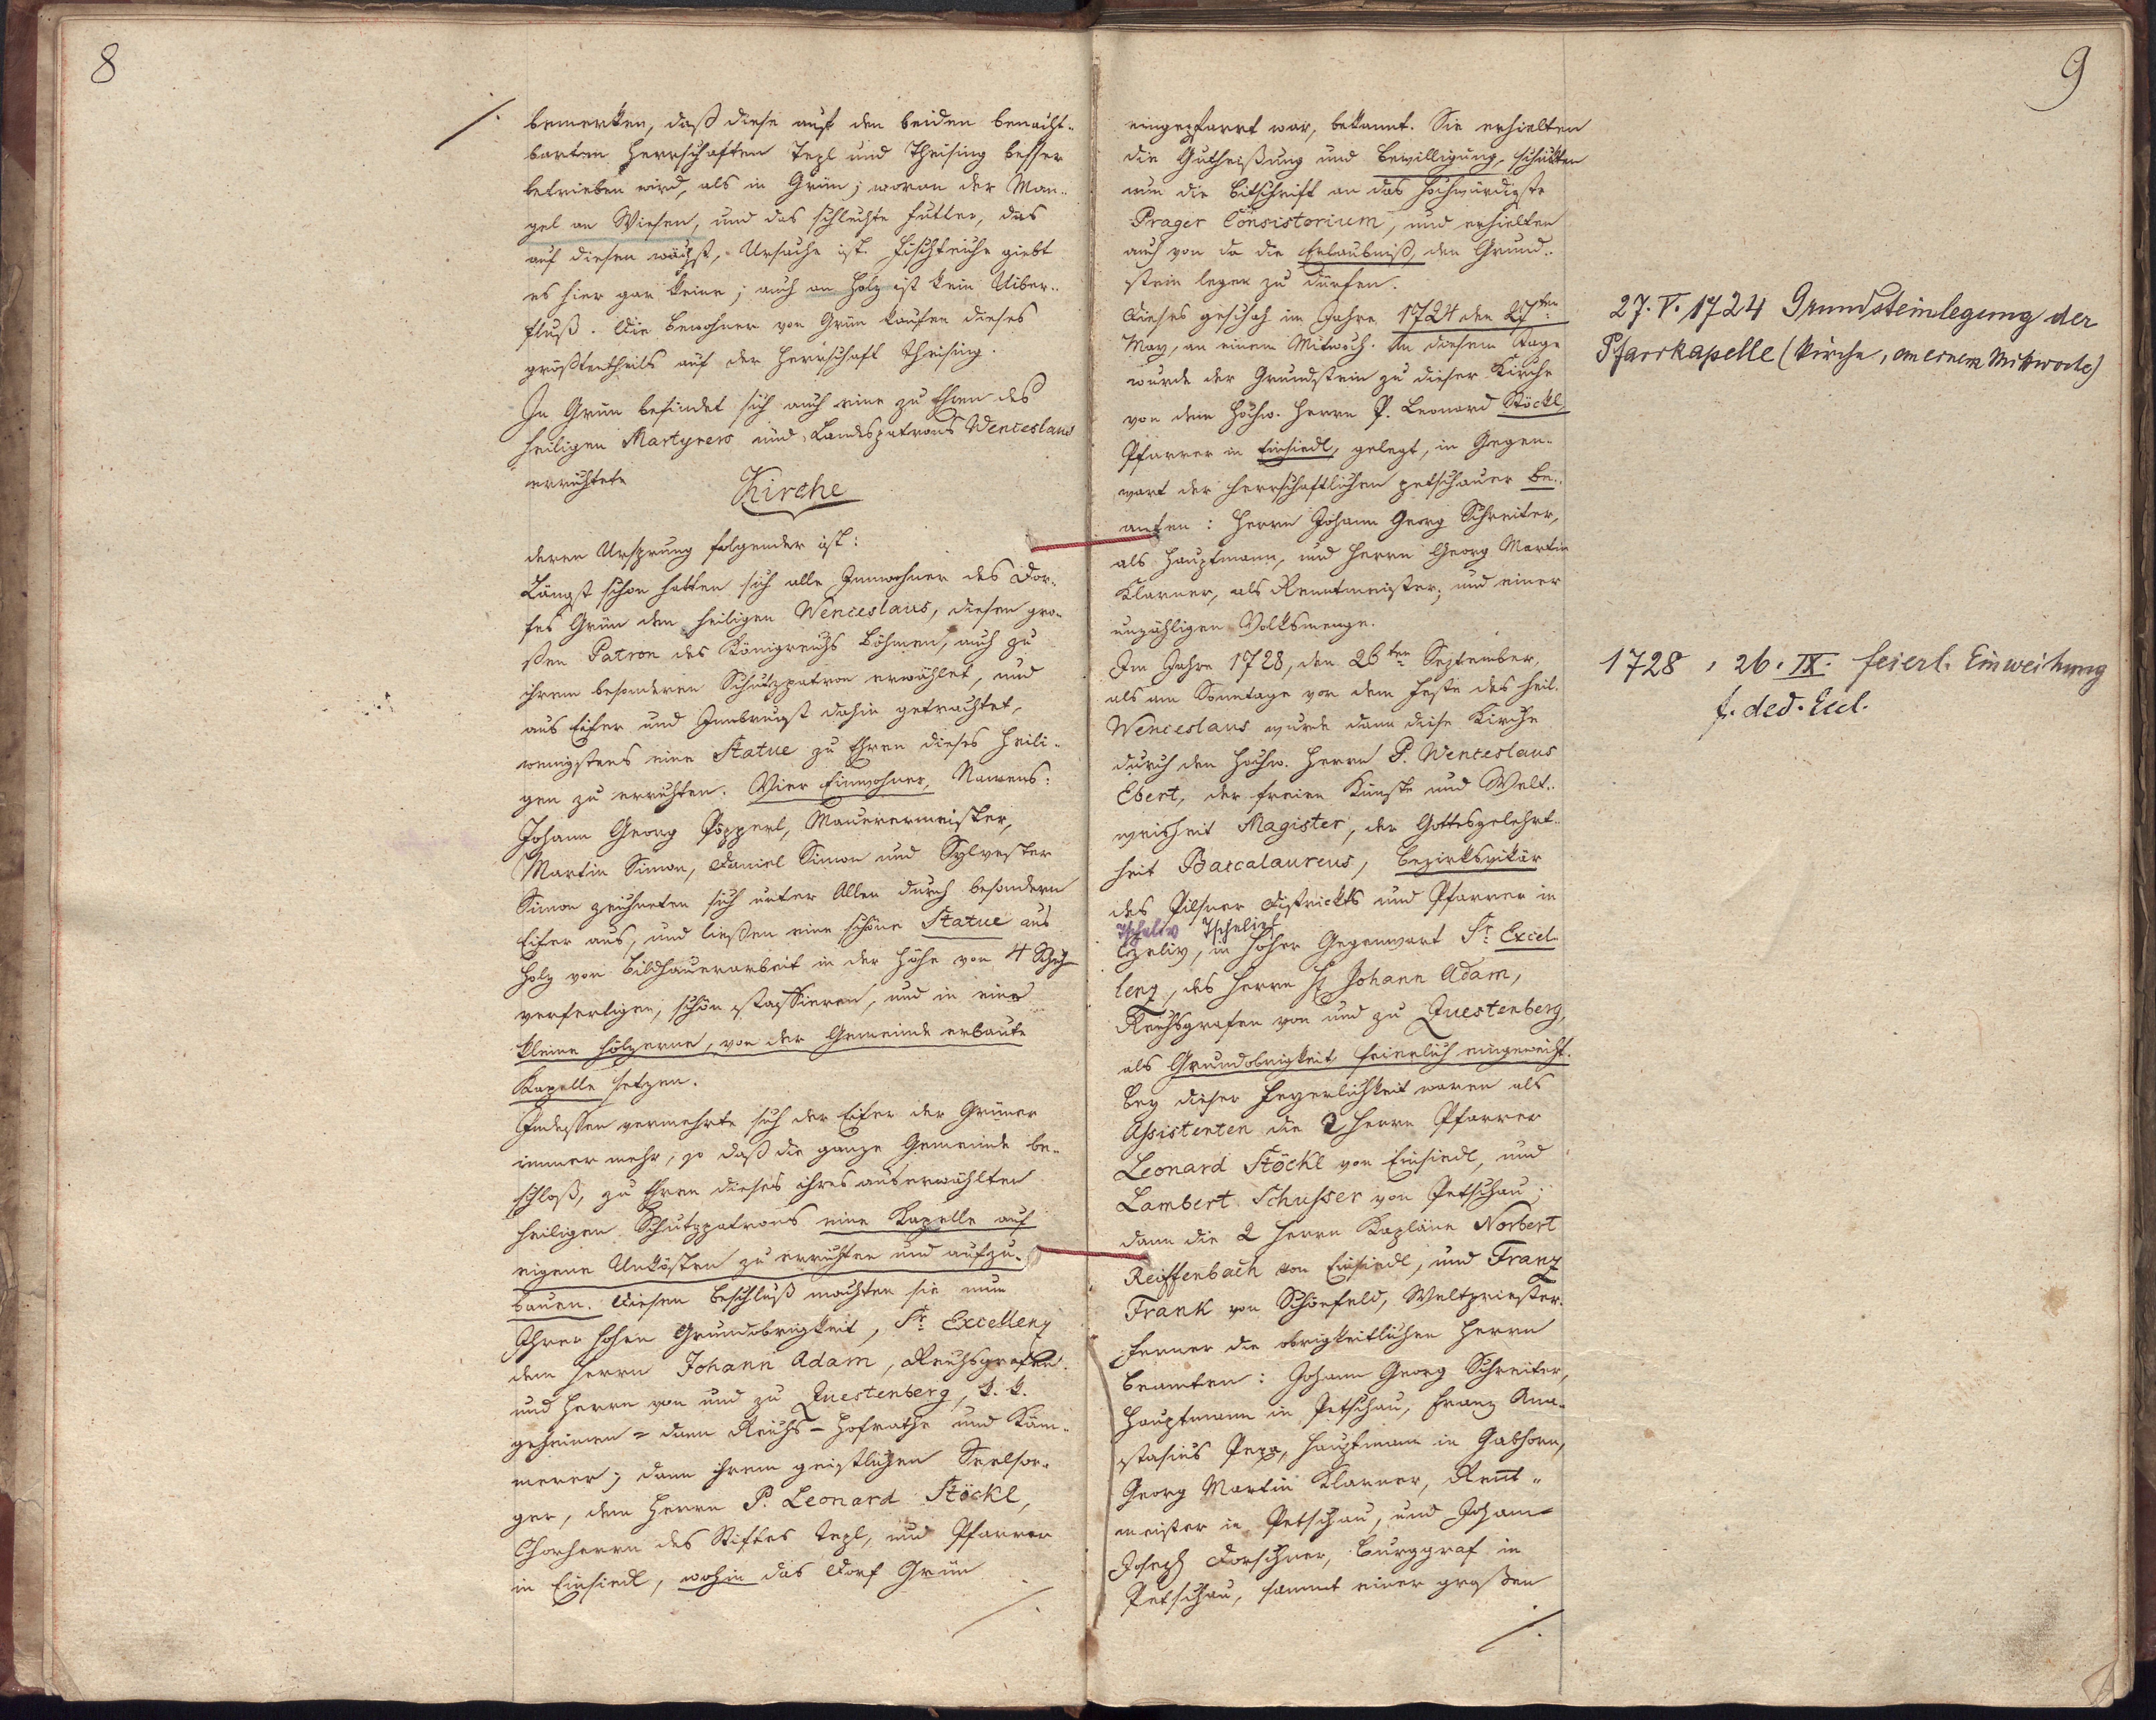 8
bemerken, daß diese auf den beiden benacht-
barten Herrschaften Tepl und Theising besser
betrieben wird, als in Grün; woran der Man-
gel an Wiesen, und das schlechte Futter, das
auf diesen wächst, Ursache ist. Fischteiche giebt
es hier gar keine; auch an Holz ist kein Uiber-
fluß. Die Bewohner von Grün kaufen dieses
größtentheils auf der Herrschaft Theising.
In Grün befindet sich auch eine zu Ehren des
heiligen Martyrers und Landespatrons Wenceslaus
errichtete
Kirche
deren Ursprung folgender ist:
Längst schon hatten sich alle Innwohner des Dor-
fes Grün den heiligen Wenceslaus, diesen gro-
ßen Patron des Königreichs Böhmen, auch zu
ihrem besonderen Schutzpatron erwählet, und
aus Eifer und Innbrunst dahin getrachtet,
wenigstens eine Statue zu Ehren dieses Heili-
gen zu errichten. Vier Einwohner, Namens:
Johann Georg Pöpperl, Mauerermeister,
Martin Simon, Daniel Simon und Sylvester
Simon zeichneten sich unter Allen durch besondern
Eifer aus, und ließen eine schöne Statue aus
Holz von Bildhauerarbeit in der Höhe von 4 Schuh
verfertigen, schön staffieren, und in eine
kleine hölzerne, von der Gemeinde erbaute
Kapelle setzen.
Indessen vermehrte sich der Eifer der Grüner
immer mehr, so daß die ganze Gemeinde be-
schloß, zu Ehren dieses ihres auserwählten
heiligen Schutzpatrons eine Kapelle auf
eigene Unkösten zu errichten und aufzu-
bauen. Diesen Beschluß machten sie nun
Ihrer hohen Grundobrigkeit, Sr. Excellenz
dem Herrn Johann Adam, Reichsgrafen
und Herrn von und zu Questenberg, k. k.
geheimen = dann Reichs-Hofrathe und Käm-
merer; dann ihrem geistlichen Seelsor-
ger, dem Herrn P. Leonard Stöckl,
Chorherrn des Stiftes Tepl, und Pfarrer
in Einsiedl, wohin das Dorf Grün
9
eingepfarrt war, bekannt. Sie erhielten
die Gutheißung und Bewilligung, schickten
nun die Bitschrift an das Hochwürdigste
Prager Consistorium, und erhielten
auch von da die Erlaubniß, den Grund-
stein legen zu dürfen.
Dieses geschah im Jahre 1724 den 27ten
May, an einem Mitwoch. An diesem Tage
wurde der Grundstein zu dieser Kirche
von dem Hochw. Herrn P. Leonard Stöckl,
Pfarrer in Einsiedl, gelegt, in Gegen-
wart der herrschaftlichen petschauer Be-
amten: Herrn Johann Georg Schreiter,
als Hauptmann, und Herrn Georg Martin
Klarner, als Rentmeister; und einer
unzähligen Volksmenge.
Im Jahre 1728, den 26ten September,
als am Sonntage vor dem Feste des heil.
Wenceslaus wurde dann diese Kirche
durch den Hochw. Herrn P. Wenceslaus
Ebert, der freien Künste und Welt-
weisheit Magister, der Gottesgelehrt-
heit Baccalaureus, Bezirksvikär
des Pilsner Districkts und Pfarrer in
Tscheliv Tscheliv
Czeliv, in hoher Gegenwart Sr. Excel-
lenz, des Herrn H. Johann Adam,
Reichsgrafen von und zu Questenberg,
als Grundobrigkeit feierlich eingeweiht.
Bey dieser Feyerlichkeit waren als
Assistenten die 2 Herrn Pfarrer
Leonard Stöckl von Einsiedl, und
Lambert Schusser von Petschau;
dann die 2 Herrn Kapläne Norbert
Reiffenbach von Einsiedl, und Franz
Frank von Schönfeld, Weltpriester.
Ferner die obrigkeitlichen Herrn
Beamten: Johann Georg Schreiter,
Hauptmann in Petschau, Franz Ana-
stasius Pexa, Hauptmann in Gabhorn,
Georg Martin Klarner, Rent-
meister in Petschau, und Johann
Joseph Dorschner, Burggraf in
Petschau, sammt einer großen
27. V. 1724 Grundsteinlegung der
Pfarrkapelle (Kirche, an einem Mittwoch)
1728, 26. IX. feierl. Einweihung
f. ded. Eccl.